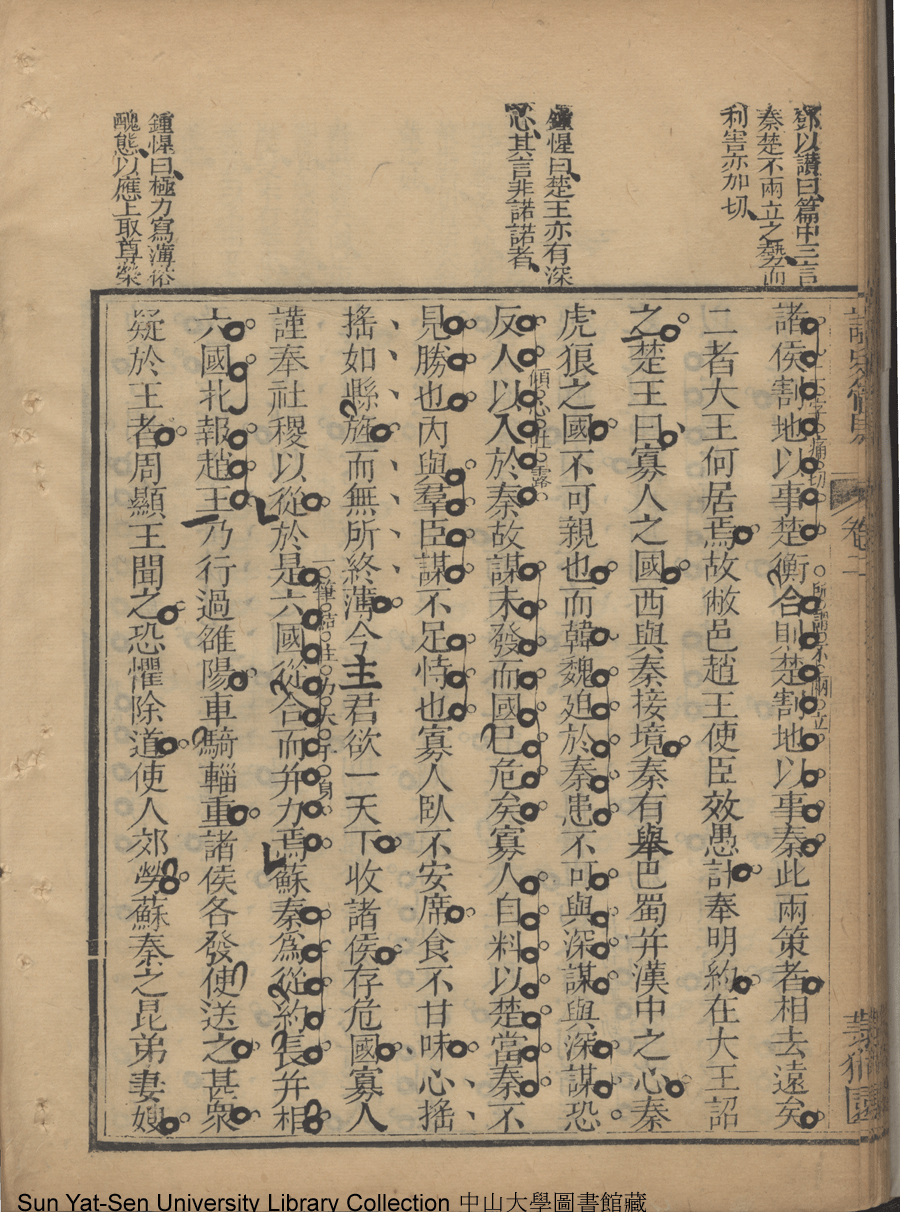 鄧以讚曰篇中三言
秦楚不兩立之勢而
利害亦加切
鍾惺曰楚王亦有深
心其言非諾諾者
鍾惺曰極力寫薄俗
醜態以應上取尊榮
卷二
諸侯割地以事楚衡合則楚割地以事秦此兩策者相去遠矣
所謂不兩立
二者大王何居焉故敝邑趙王使臣效愚計奉明約在大王詔
之楚王曰寡人之國西與秦接境秦有舉巴蜀并漢中之心秦
虎狼之國不可親也而韓魏廹於秦患不可與深謀與深謀恐
傾心吐露
反人以入於秦故謀未發而國已危矣寡人自料以楚當秦不
見勝也內與羣臣謀不足恃也寡人臥不安席食不甘味心搖
搖如縣旌而無所終薄今主君欲一天下收諸侯存危國寡人
謹奉社稷以從於是六國從合而并力焉蘇秦爲從約長并相
六國北報趙王乃行過雒陽車騎輜重諸侯各發使送之甚衆
疑於王者周顯王聞之恐懼除道使人郊勞蘇秦之昆弟妻嫂
Sun Yat-Sen University Library Collection 中山大學圖書館藏